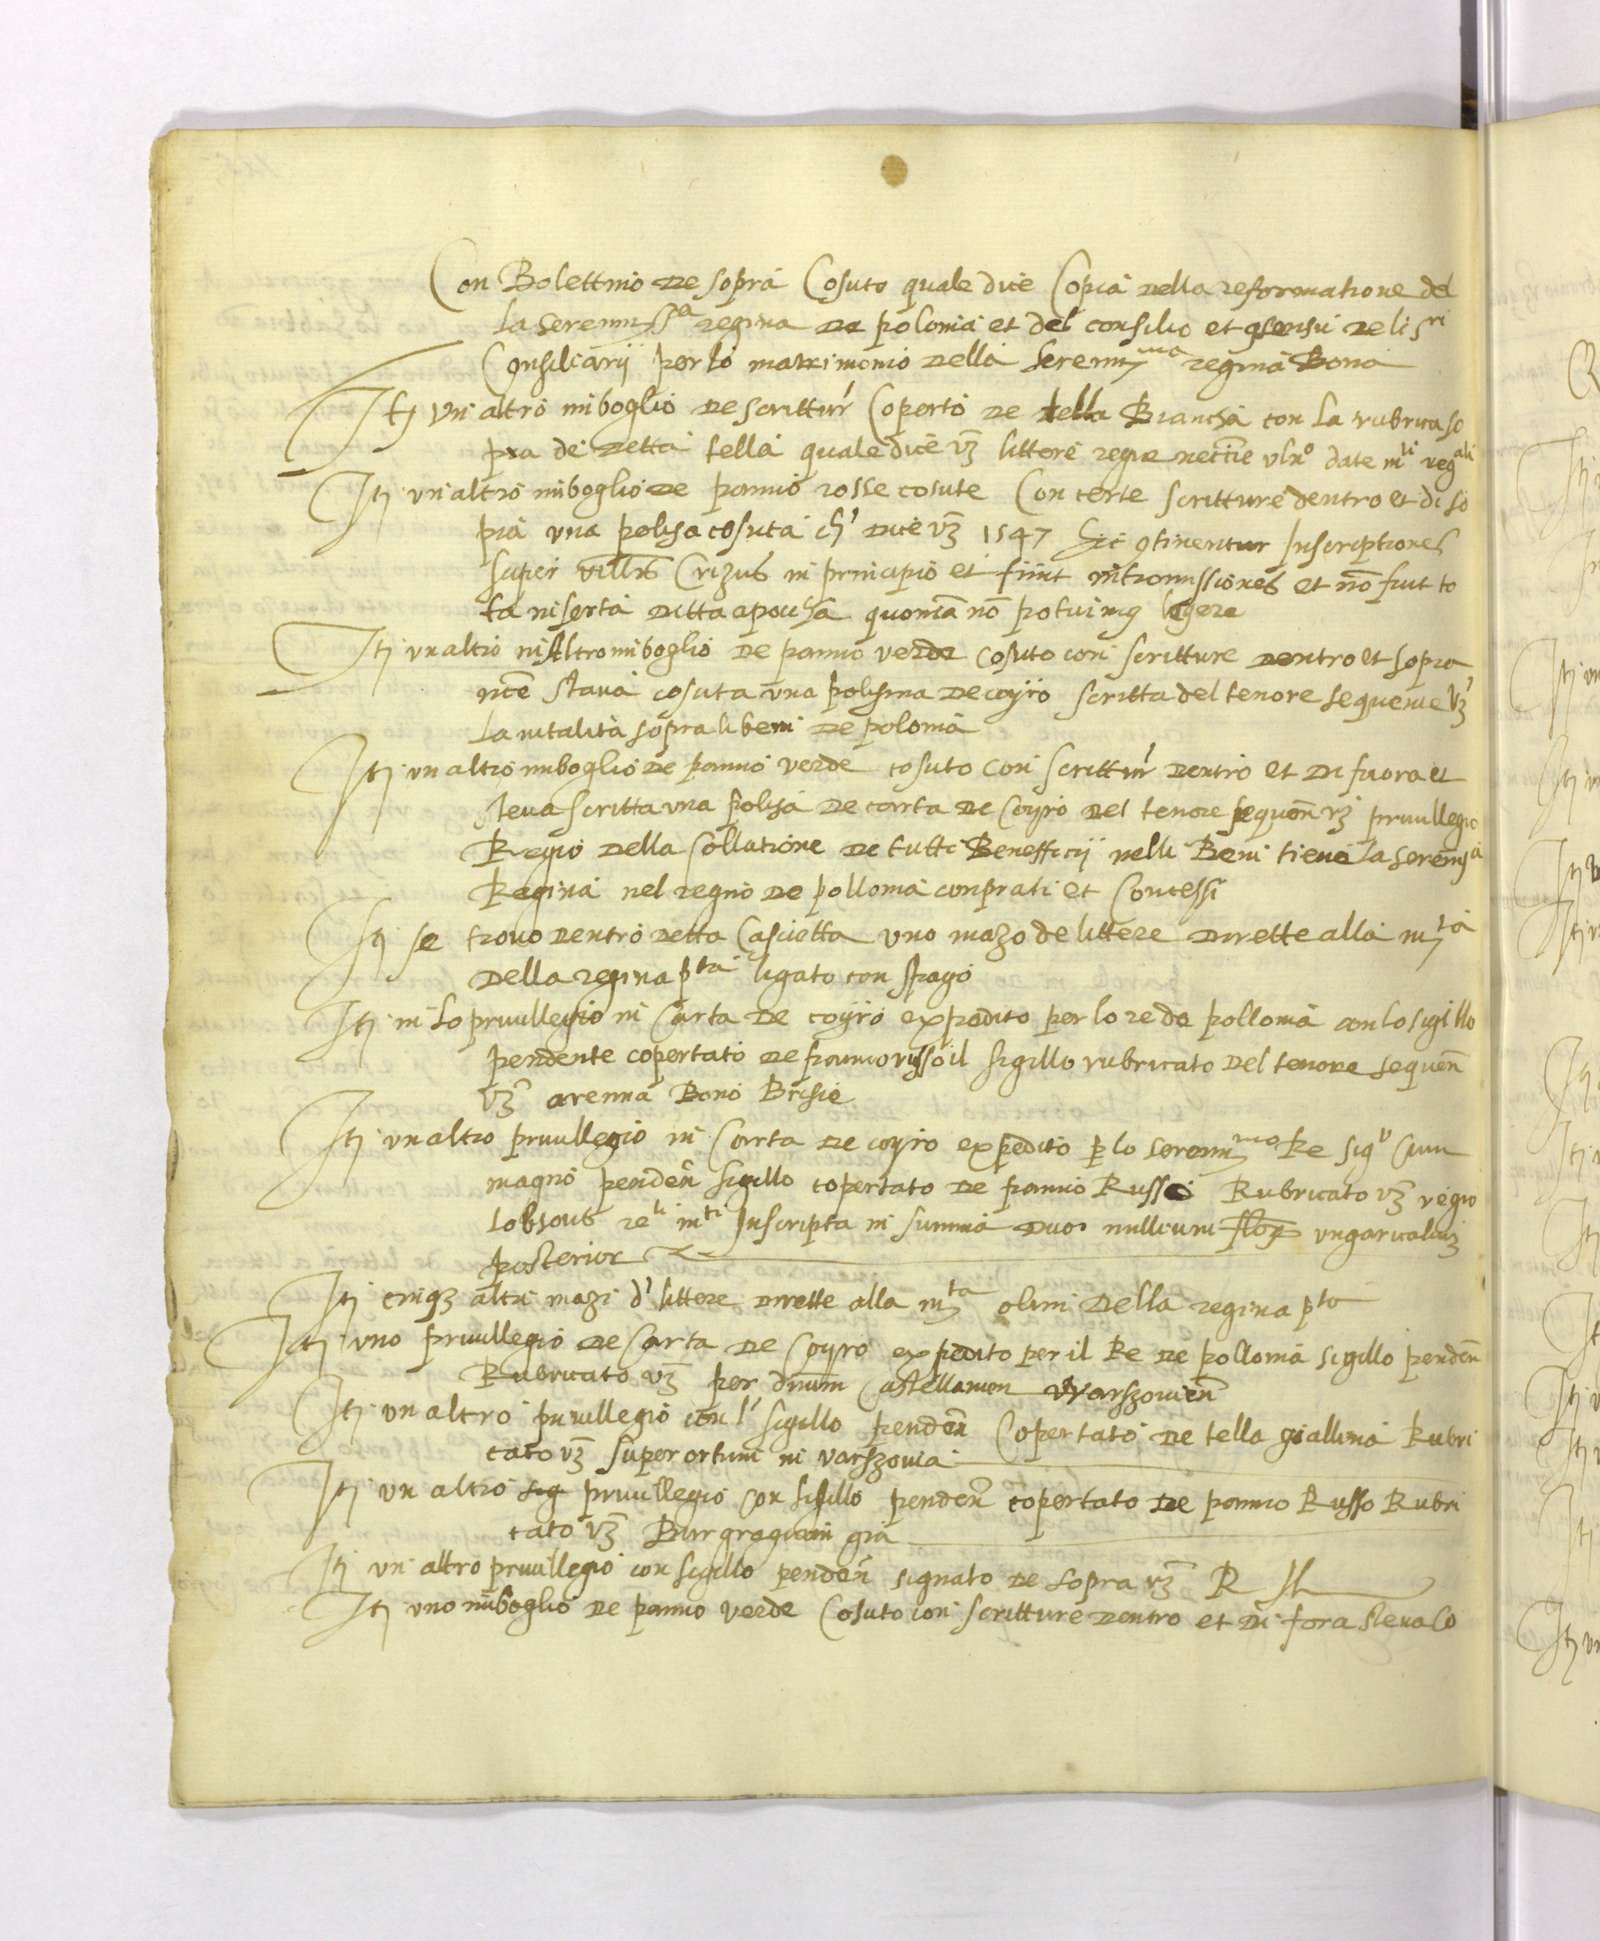 Con Bolettino de sopra Cosuto quale dice Copia della reformatione del
la serenissa regina de polonia et del consilio et consensu de li sri
Consiliarij per lo matrimonio della serenma regina Bona
Itj un altro imboglio de scrittur Coperto de tella Biancha con la rubrica so
pra de detta tella quale dice vz littere regie date mti regali
Itj un altro imboglio de panno rosse cosute Con certe scritture dentro et di so
pra una polisa cosuta ch' dice vz 1547 hic continentur Inscriptiones
super Crizus in principio et fiunt intromissiones et no fuit to
ta inserta ditta apocha quonia no potuimus legere
Itj un altro imboglio de panno verde cosuto con scritture dentro et sopra
nce stava cosuta una polisina de coyro scritta del tenore sequente vz
La vitalita sopra li beni de polonia
Itj un altro imboglio de panno verde cosuto con scrittur dentro et di fuora et
steva scritta una polisa de carta de Coyro del tenore sequen vz privillegio
Regio della Collatione de tutti Benefficij nelli Beni tiene la serenissa
Regina nel regno de pollonia conprati et Concessi
Itj se trovo dentro detta Cascietta uno mazo de littere dirette alla mta
della regina pta ligato con spago
Itj in lo privillegio in Carta de coyro expedito per lo re de pollonia con lo sigillo
pendente copertato de panno russo il sigillo rubricato del tenore sequen
vz arenna Bono Brisie
Itj un altro privillegio in Carta de coyro expedito p lo serenmo Re sigo Cum
magno penden sigillo copertato de panno Russo Rubricato vz regio
Lobsous reli mti Inscripta in summa duor millium flor ungaricaliu
posterior
Itj cinqz altri mazi d' littere dirette alla mta olim della regina pta
Itj uno privillegio de Carta de Coyro expedito per il Re de pollonia sigillo penden
Rubricato vz per dnum Castellanum Warszovien
Itj un altro privillegio con l' sigillo penden Copertato de tella giallina Rubri
cato vz super ortum in varszovia
Itj un altro sig privillegio con sigillo penden copertato de panno Russo Rubri
cato vz
Itj un altro privillegio con sigillo penden signato de sopra vz R H
Itj uno imboglio de panno verde Cosuto con scritture dentro et di fora steva co